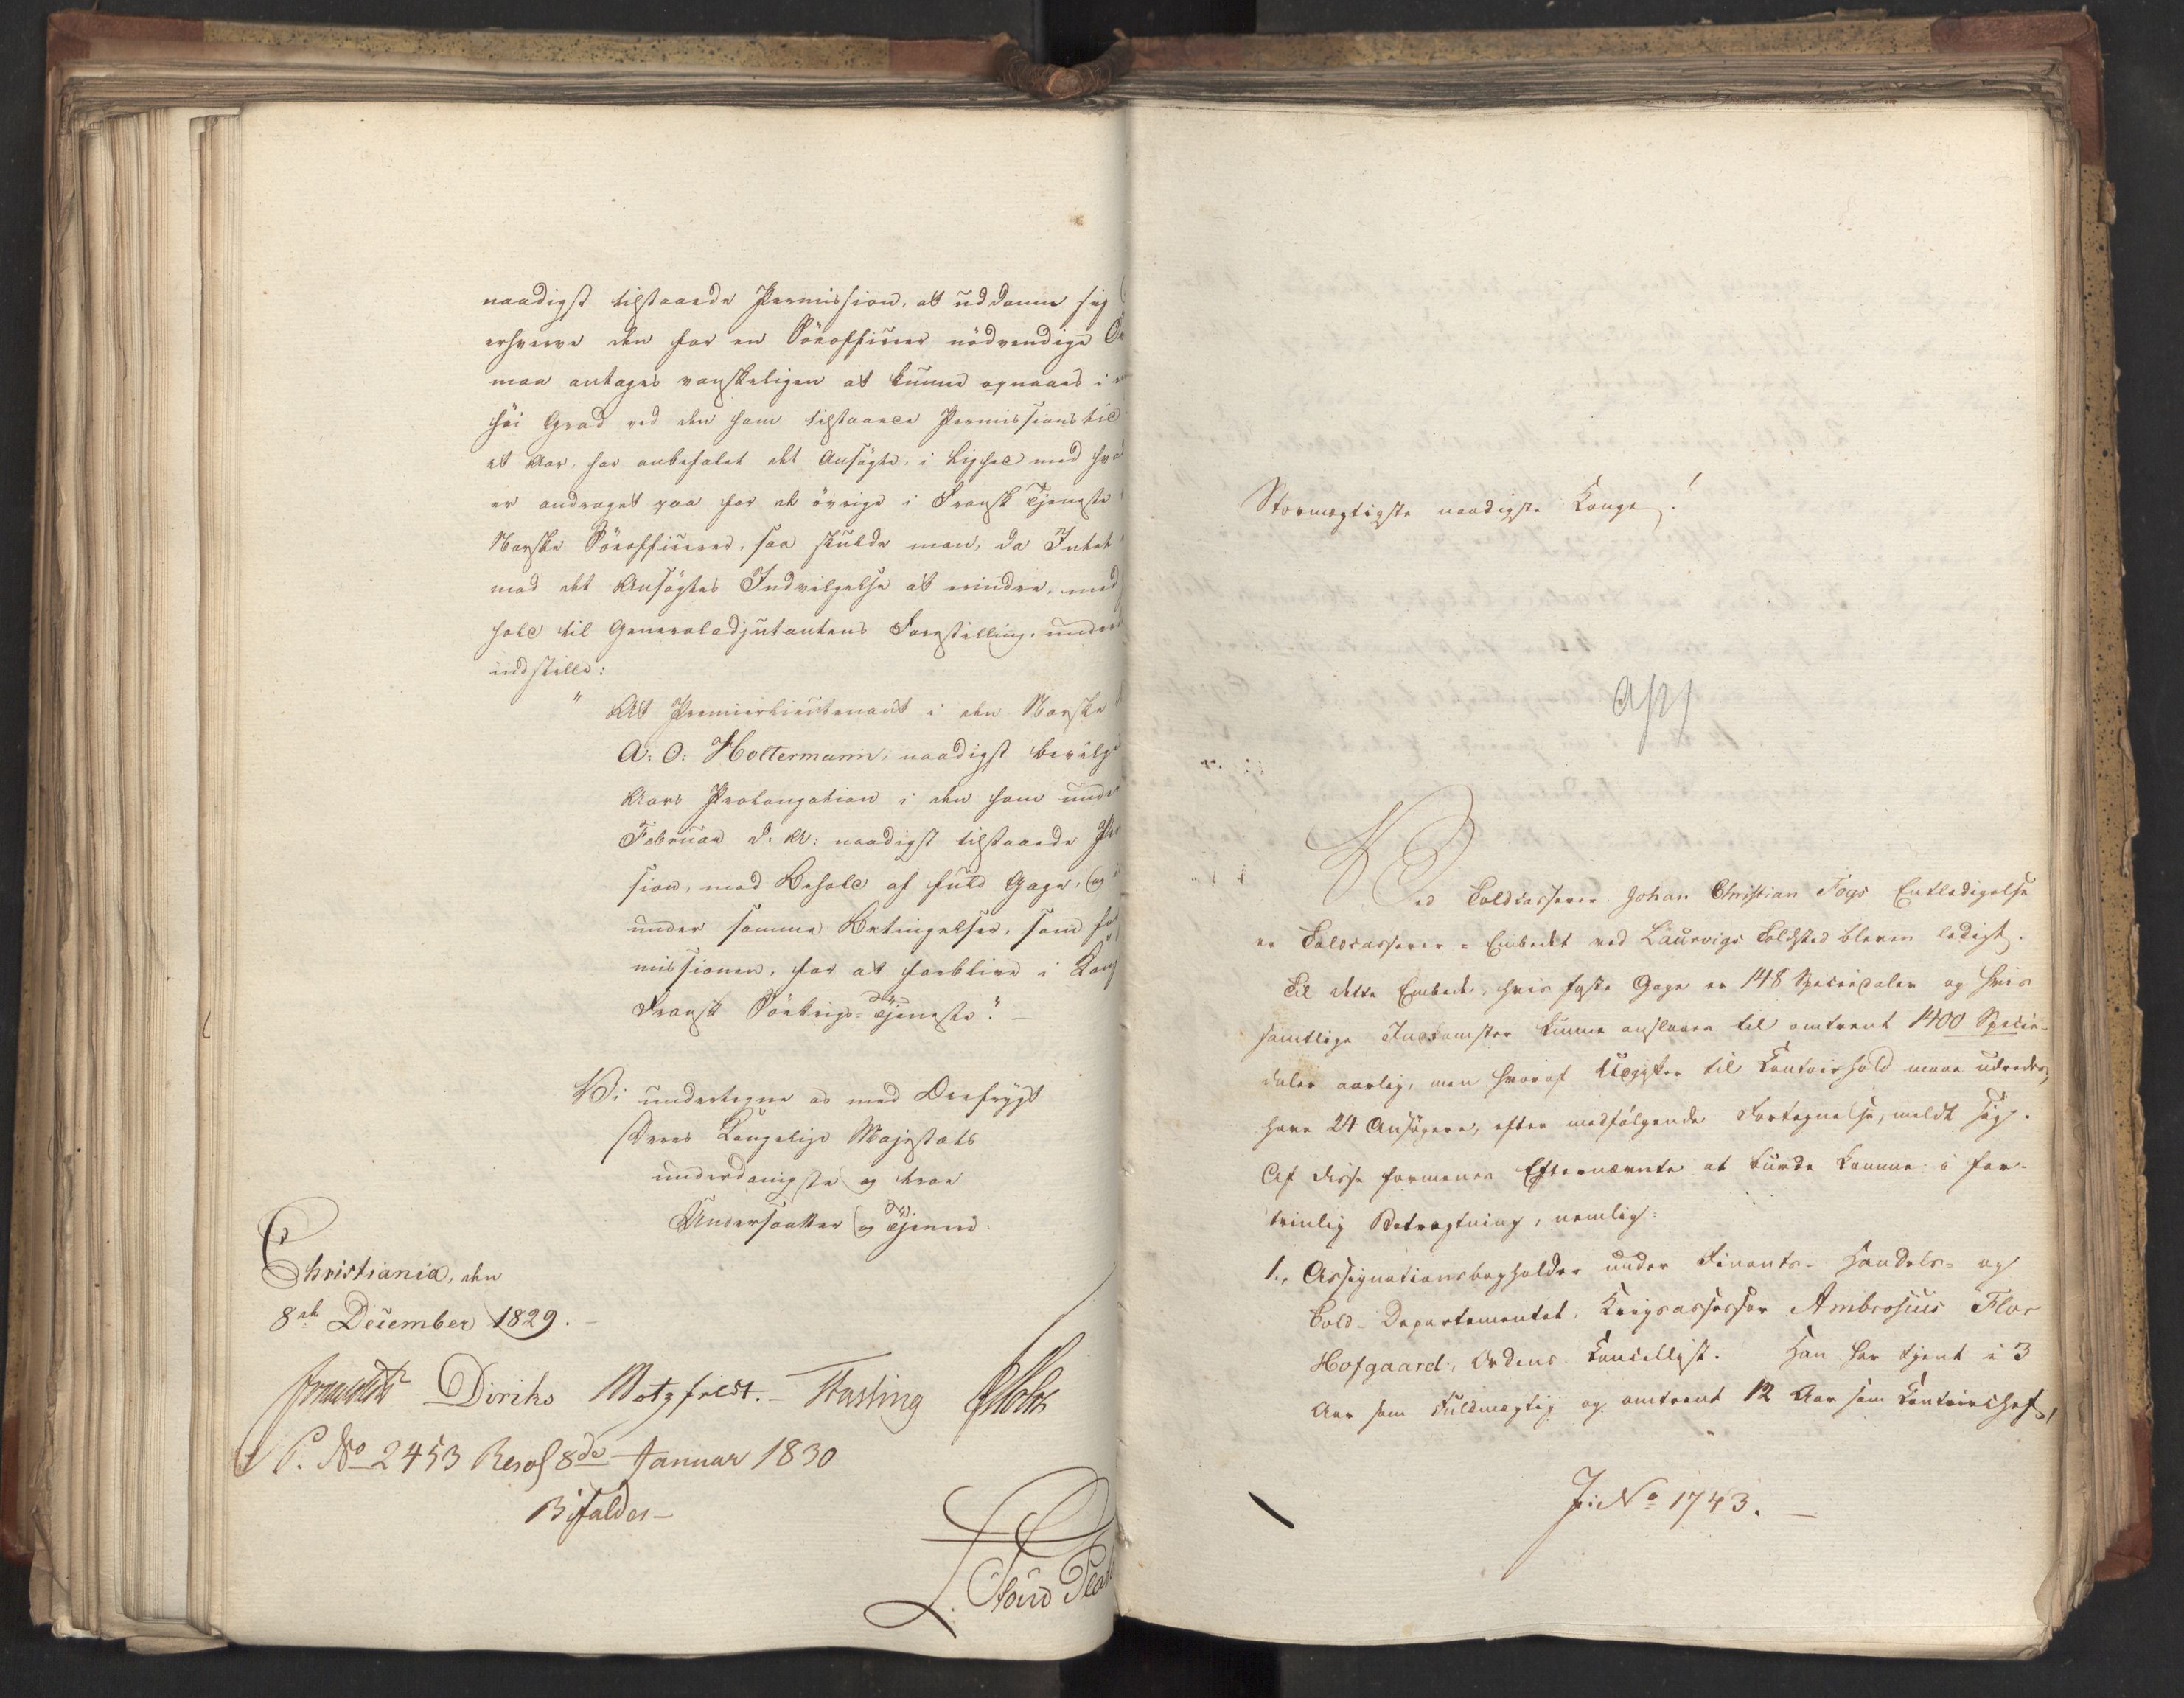 naadigst tilstaaede Permission, at uddanne sig
erhverve den for en Söeofficeer nödvendige
maa antages vanskeligen at kunne opnaaes i
höi Grad ved den ham tilstaaede Permissions tid
et Aar, har anbefalet det Ansögte, i Lighed med hva
er andraget paa for de övrige i Fransk Tjeneste
Norske Söeofficerer, saa skulde man, da Intet
mod det Ansögtes Indvilgelse at erindre, med
hold til Generaladjutantens Forestilling, under
indstille:
" At Premierlieutenant i den Norske
A: O: Holtermann, naadigst bevilge
Aars Prolongation i den ham under
Februar d. A: naadigst tilstaaede Per
sion, med Behold af fuld Gage, og
under samme Betingelser, som
missionen, for at forblive i Kong
Fransk Söekrigs-Tjeneste." –
Vi undertegne os med Ærefrygt
Deres Kongelige Majestæts
underdanigste og troe
Undersaatter og Tjenere.
Christiania, den
8de December 1829. –
Diriks Motzfeldt. – Fasting Holst
S. P. No 2453 Resol 8de Januar 1830
Bifaldes –
Stormægtigste naadigste Konge!
Ved Toldcasserer Johan Christian Fogs Entledigelse
er Toldcasserer-Embedet ved Laurvigs Toldsted bleven ledigt.
Til dette Embede, hvis faste Gage er 148 Speciedaler og hvis
samtlige Indkomster kunne anslaaes til omtrent 1400 Specie-
daler aarlig, men hvoraf Udgifter til Contoirhold maae udredes,
have 24 Ansögere, efter medfölgende Fortegnelse, meldt sig.
Af disse formenes Efternævnte at burde komme i for-
trinlig Betragtning, nemlig:
1., Assignationsbogholder under Finants- Handels- og
Told-Departementet, Krigsassessor Ambrosius Flor
Hofgaard, Ordens Cancellist. Han har tjent i 3
Aar som Fuldmægtig og omtrent 12 Aar som Contoirchef,
J: No 1743. –